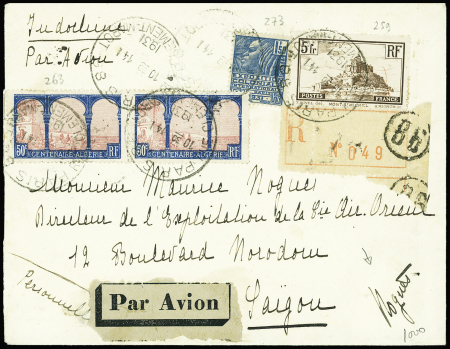 Indochine
Par Avion
263
273
259
5fr RF
POSTES FRANCE
50c CENTENAIRE-ALGÉRIE RF
50c CENTENAIRE-ALGÉRIE RF
PARIS
1931
R N° 049
88
Monsieur Maurice Nogues
Directeur de l'Exploitation de la Cie Air Orient
12 Boulevard Norodom
Saïgon
Personnelle
Par Avion
Nogues
1000